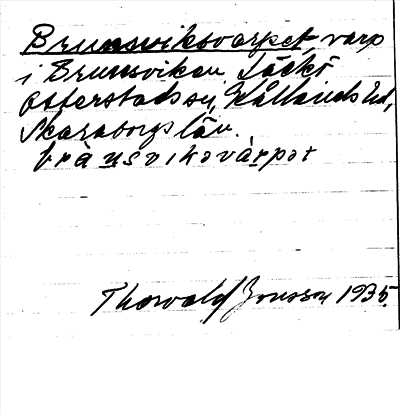 Brunsviksvarpet varp
i Brunsviken. Läckö
Otterstads sn, Kållands hd,
Skaraborgs län.
brùnsvikəvárpət
Thorvald Jonsson 1935.